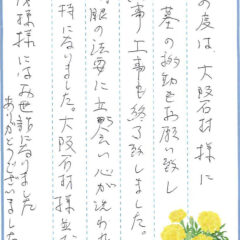 の度は、大阪石材様に
墓の移動をお願い致し
事工事も終了致しました。
眼の法要に立会い心が洗われ
持になりました。大阪石材様並び
様様にはお世話になりました
ありがとうございました